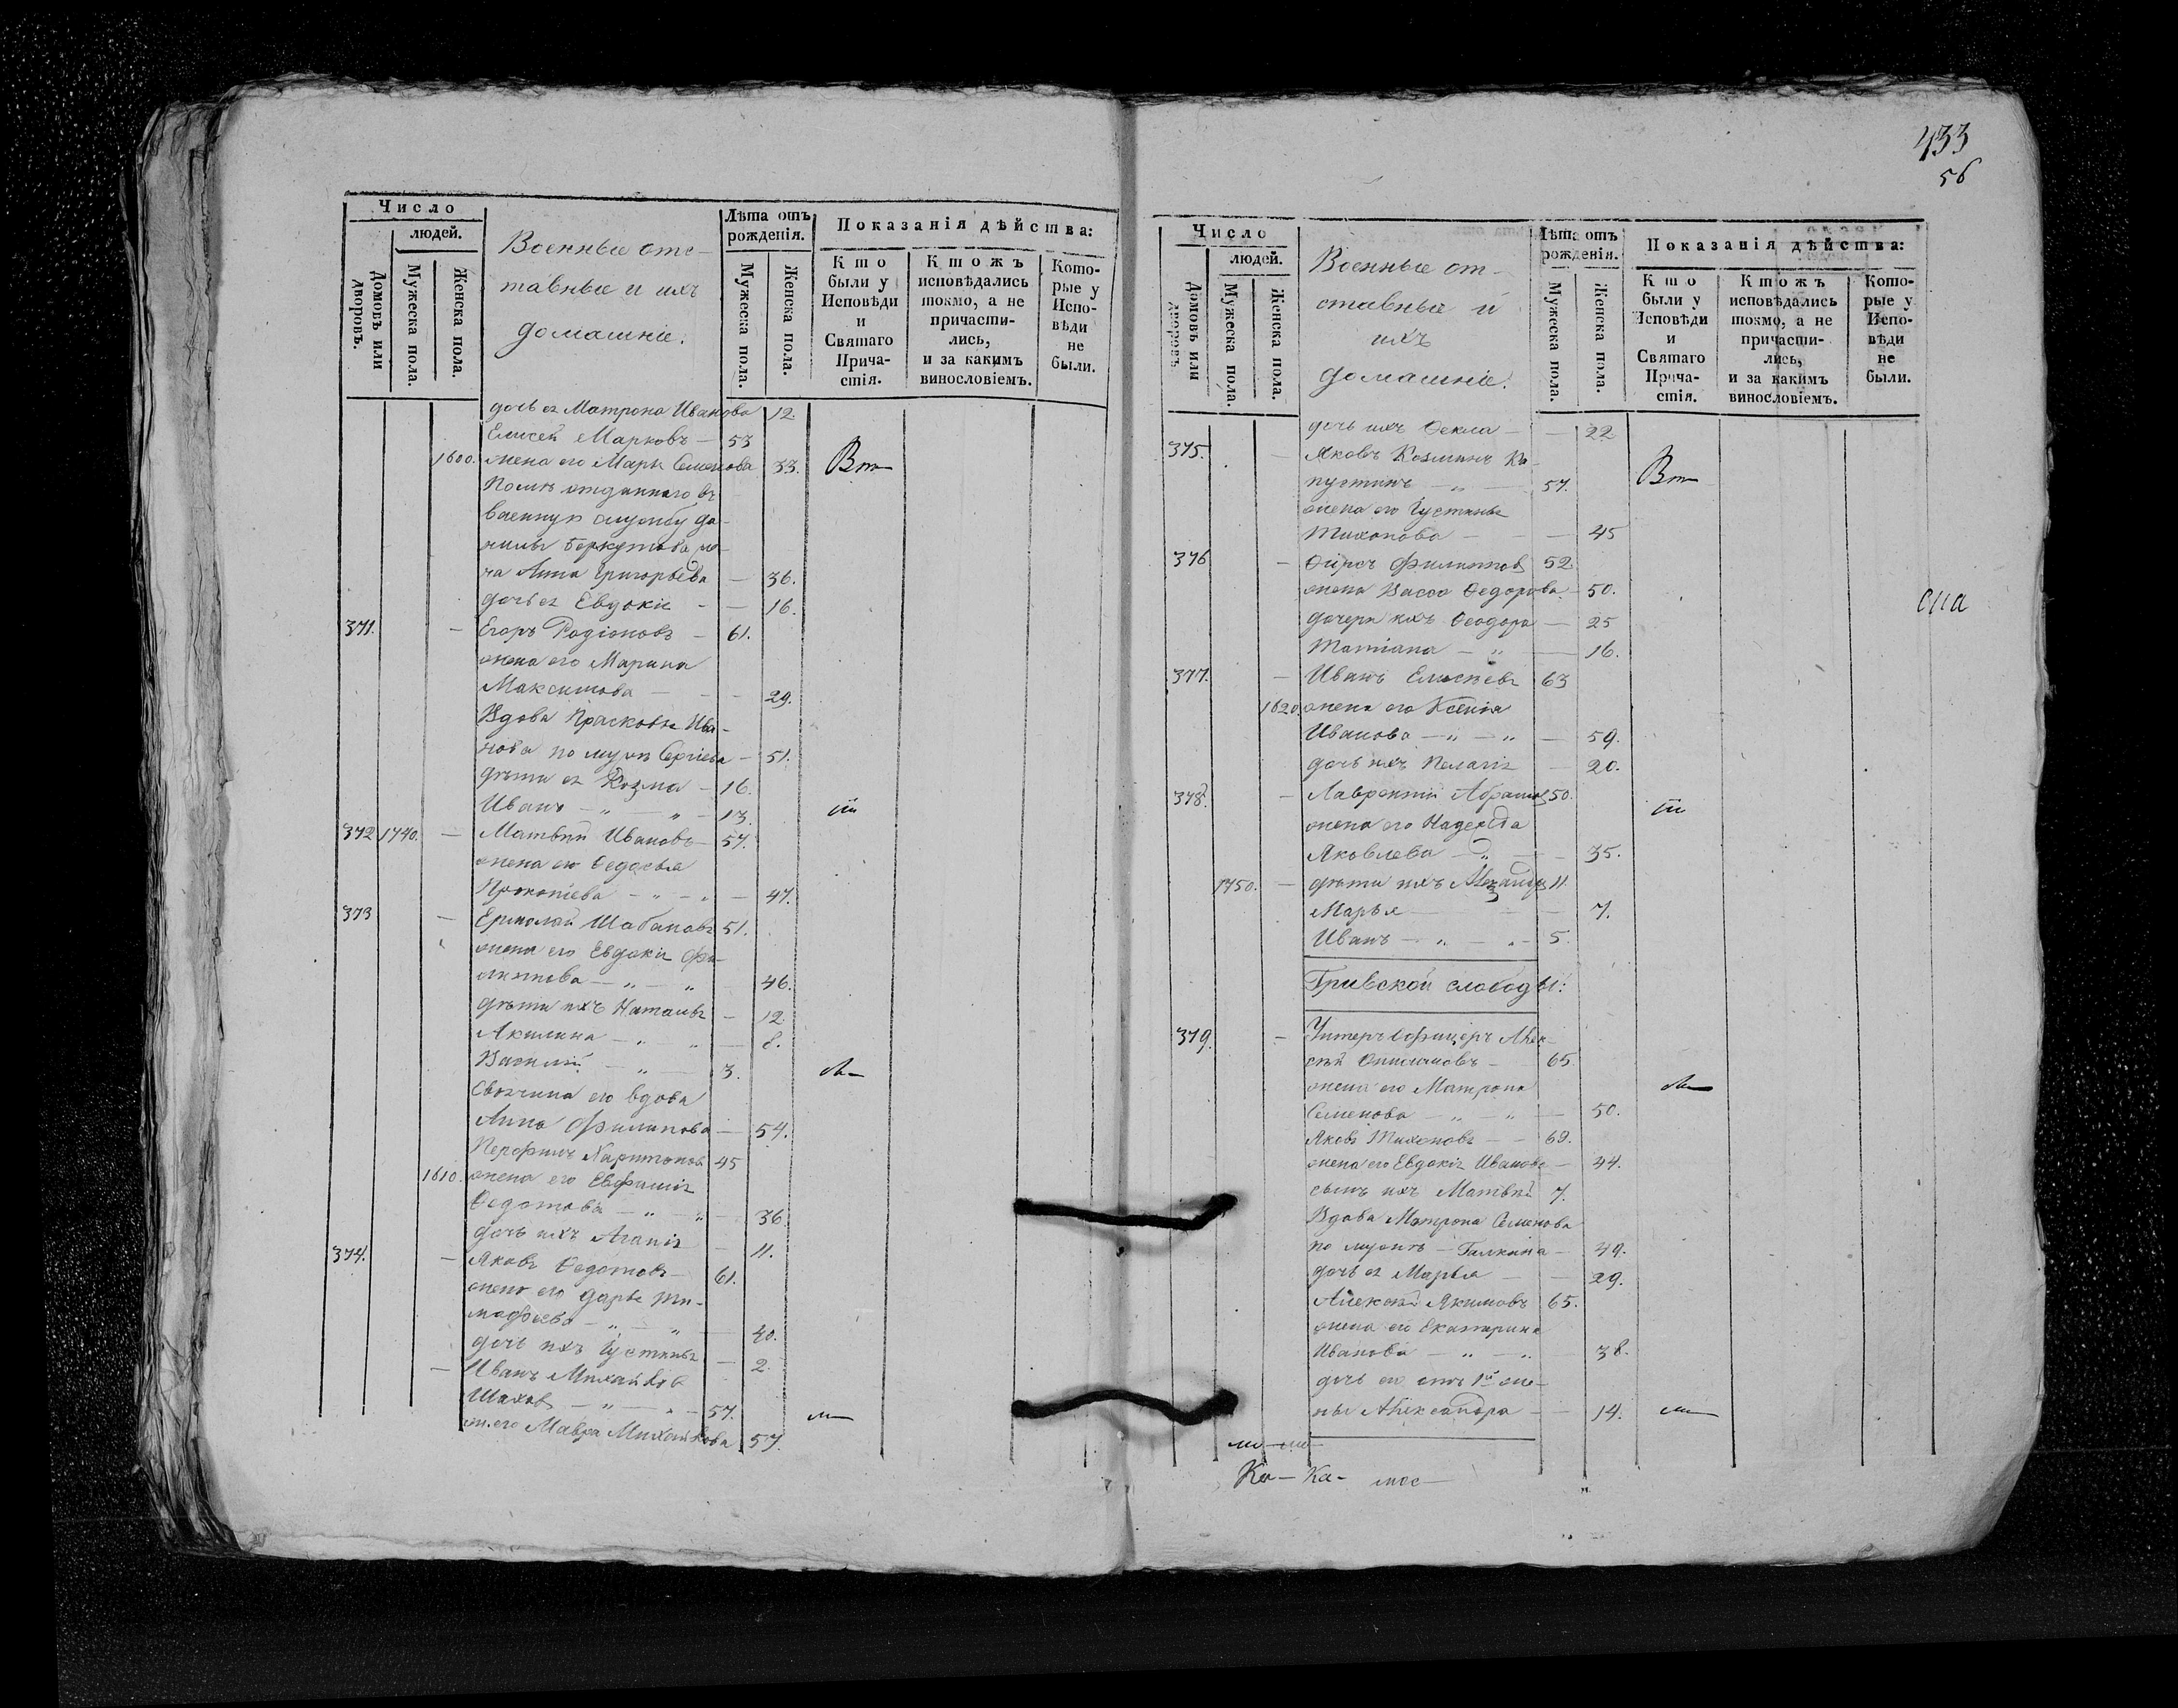 433
56
Число
людей.
Домовъ или дворовъ.
Мужеска пола.
Женска пола.
Военные отс-
тавные и ихъ
домашніе.
Лѣта отъ
рожденія.
Мужеска пола.
Женска пола.
Показанія дѣйства:
Кто
были у
Исповѣди
и
Святаго
Прича-
стія.
Ктожъ
исповѣдались
токмо, а не
причасти-
лись,
и за какимъ
винословіемъ.
Кото-
рые у
Испо-
вѣди
не
были.
дочь ея Матрона Иванова 12.
Елисей Марковъ — 53
1600. жена его Марья Семенова 33. Вт
отданнаго въ
военную службу Да-
нилы
на Анна Григорьева — 36.
дочь ея Евдокія — 16.
371. — Егоръ Родіоновъ — 61.
жена его Марина
Максимова — — 29.
Вдова Прасковья Ива-
нова по мужѣ Сергіева — 51.
дѣти ея Козма — 16.
Иванъ — „ — 13.
372 1740. — Матвѣй Ивановъ — 57.
жена его Федосья
Прокопіева — „ — „ — 47.
373 — Ермолай Шабановъ 51.
жена его Евдокія Фи-
липпова — „ — „ 46.
дѣти ихъ Наталья — 12
Акилина — „ „ — 8.
Василій — „ — 3.
Своячина его вдова
Анна Филипова — 54.
Харитоновъ 45
1610. жена его
Федотова — „ — „ 36.
дочь ихъ Агапія — 11.
374. — Яковъ Федотовъ — 61.
жена его Дарья Ти-
мофеева — „ — „ 40.
дочь ихъ Іустинья — 2.
— Иванъ Михайловъ
Шахов — „ — „ — 57.
ж. его Мавра Михайлова 57.
Число
людей.
Домовъ или дворовъ
Мужеска пола.
Женска пола.
Военные от-
ставные и
ихъ
домашніе.
Лѣта отъ
рожденія.
Мужеска пола.
Женска пола.
Показанія дѣйства:
Кто
были у
Исповѣди
и
Святаго
Прича-
стія.
Ктожъ
исповѣдались
токмо, а не
причасти-
лись,
и за какимъ
винословіемъ.
Кото-
рые у
Испо-
вѣди
не
были.
дочь ихъ Фекла — — 22
375. — Яковъ Козминъ Ка-
пустинъ — „ — 57. Вт
жена его Іустинья
Тихонова — — 45
376 — Филиппов 52
жена Васса Федорова — 50.
дочери ихъ Феодора — 25
Татіана — „ — 16.
377. — Иванъ Елисѣевъ 63
1620. жена его Ксенія
Иванова — „ — „ — 59.
дочь ихъ Пелагія — 20.
378. — Лаврентій Абрамов 50.
жена его Надежда
Яковлева — „ — — 35.
1750. — дѣти ихъ 11.
Марья — — 7.
Иванъ — „ — „ — 5.
Гривской слободы:
379. — Унтеръ Офицеръ Алек-
сѣй Анисимовъ — 65
жена его Матрона
Семенова — „ — „ — 50.
Яковъ Тихоновъ — — 69.
жена его Евдокія Иванова — 44.
сынъ ихъ Матвѣй 7.
Вдова Матрона Семенова
по мужѣ — Галкина — 49.
дочь ея Марья — — 29.
Алексѣй Якимовъ 65.
жена его Екатерина
Иванова — „ — „ — 38.
дочь его отъ 1й же-
ны Александра — — 14.